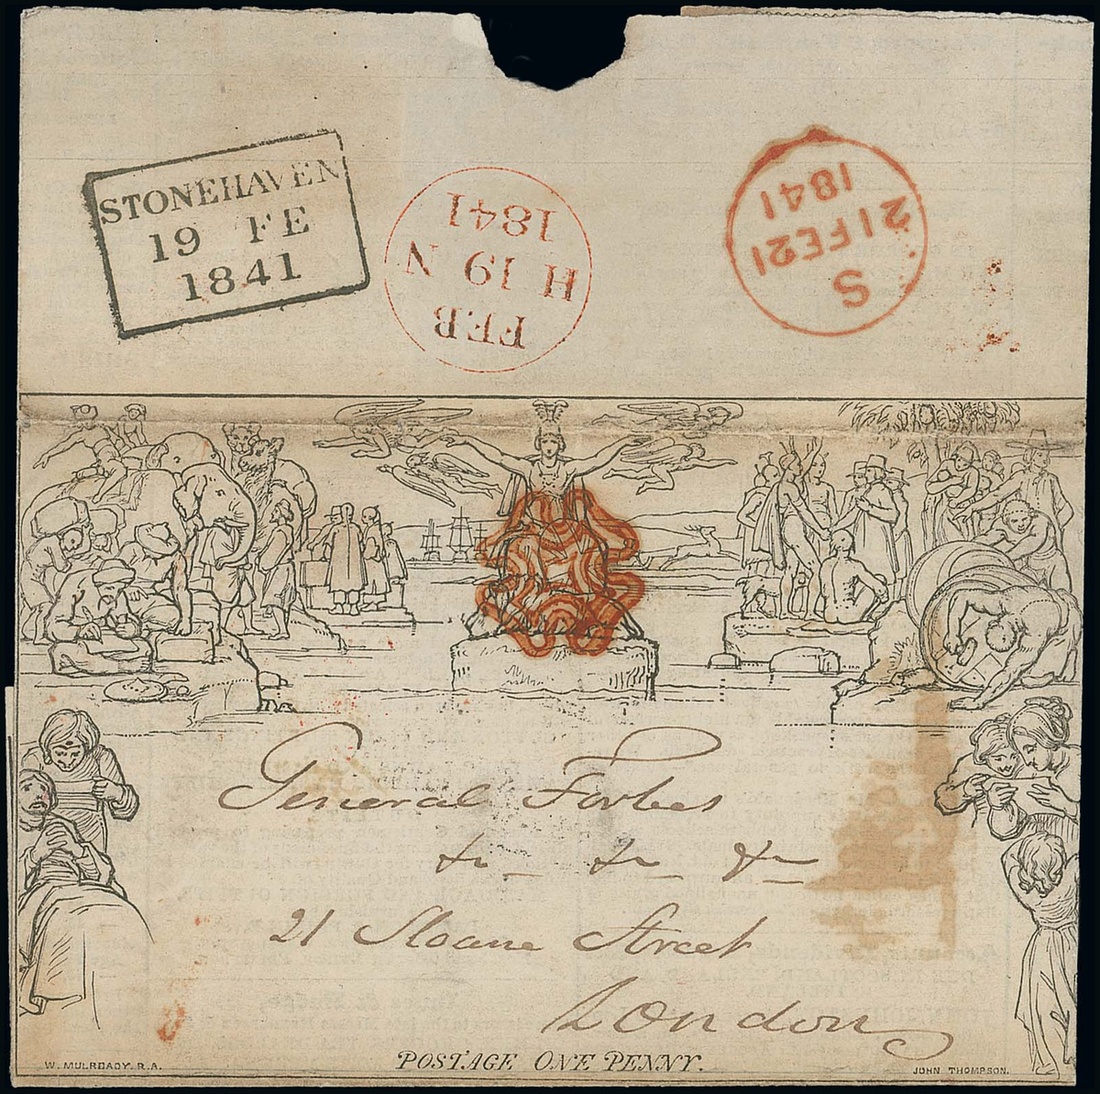 STONEHAVEN
19 FE
1841
FEB
H 19 N
1841
S
21FE21
1841
General Forbes
&c &c &c
21 Sloane Street
London
W. MULREADY. R.A.
POSTAGE ONE PENNY.
JOHN THOMPSON.